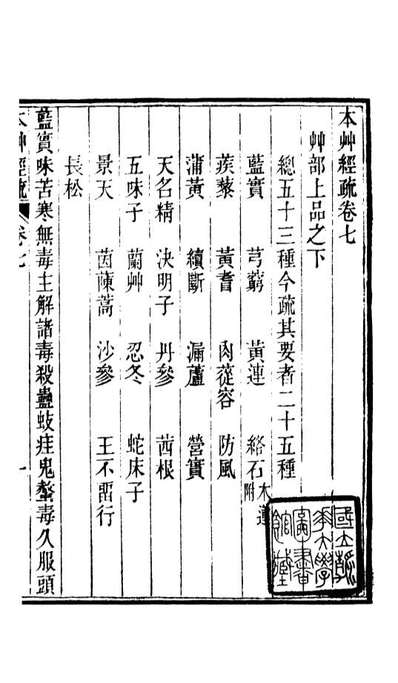 本艸經疏卷七
艸部上品之下
總五十三種今疏其要者二十五種
藍實 芎藭 黃連 絡石木蓮附
蒺蔾 黃耆 肉蓯容 防風
蒲黃 續斷 漏蘆 營實
天名精 決明子 丹參 茜根
五味子 蘭艸 忍冬 蛇床子
景天 茵蔯蒿 沙參 王不畱行
長松
藍實味苦寒無毒主解諸毒殺蠱蚑疰鬼螫毒久服頭
本艸經疏 卷七 一